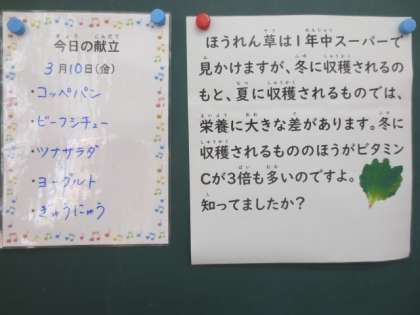 今日の献立
3月10日(金)
・コッペパン
・ビーフシチュー
・ツナサラダ
・ヨーグルト
・ぎゅうにゅう
ほうれん草は1年中スーパーで
見かけますが、冬に収穫されるの
もと、夏に収穫されるものでは、
栄養に大きな差があります。冬に
収穫されるもののほうがビタミン
Cが3倍も多いのですよ。
知ってましたか?